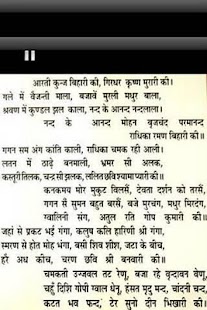 आरती कुन्ज बिहारी की, गिरधर कृष्ण मुरारी की।
गले में वैजन्ती माला, बजावें मुरली मधुर बाला,
श्रवण में कुण्डल झल काला, नन्द के आनन्द नन्दलाला।
नन्द के आनन्द मोहन बृजचंद परमानन्द
राधिका रमण बिहारी की।
गगन सम अंग कांति काली, राधिका चमक रही आली।
लतन में ठाढ़े बनमाली, भ्रमर सी अलक,
कस्तूरीतिलक, चन्द्र सी झलक, ललितछविश्यामाप्यारी की।
कनकमय मोर मुकुट विलसैं, देवता दर्शन को तरसैं,
गगन सैं सुमन बहुत बरसैं, बजे मुरचंग, मधुर मिरदंग,
ग्वालिनी संग, अतुल रति गोप कुमारी की।
जहां से प्रकट भई गंगा, कलुष कलि हारिणी श्री गंगा।
स्मरण से होत मोह भंगा, बसी शिव शीश, जटा के बीच,
हरै अध कीच, चरण छवि श्री बनवारी की।
चमकती उज्जवल तट रेणू, बजा रहे वृन्दावन वेणू,
चहुं दिशि गोपी ग्वाल धेनू, हंसत मृदु मन्द, चांदनी चन्द,
कटत भव फन्द, टेर सुनो दीन भिखारी की।